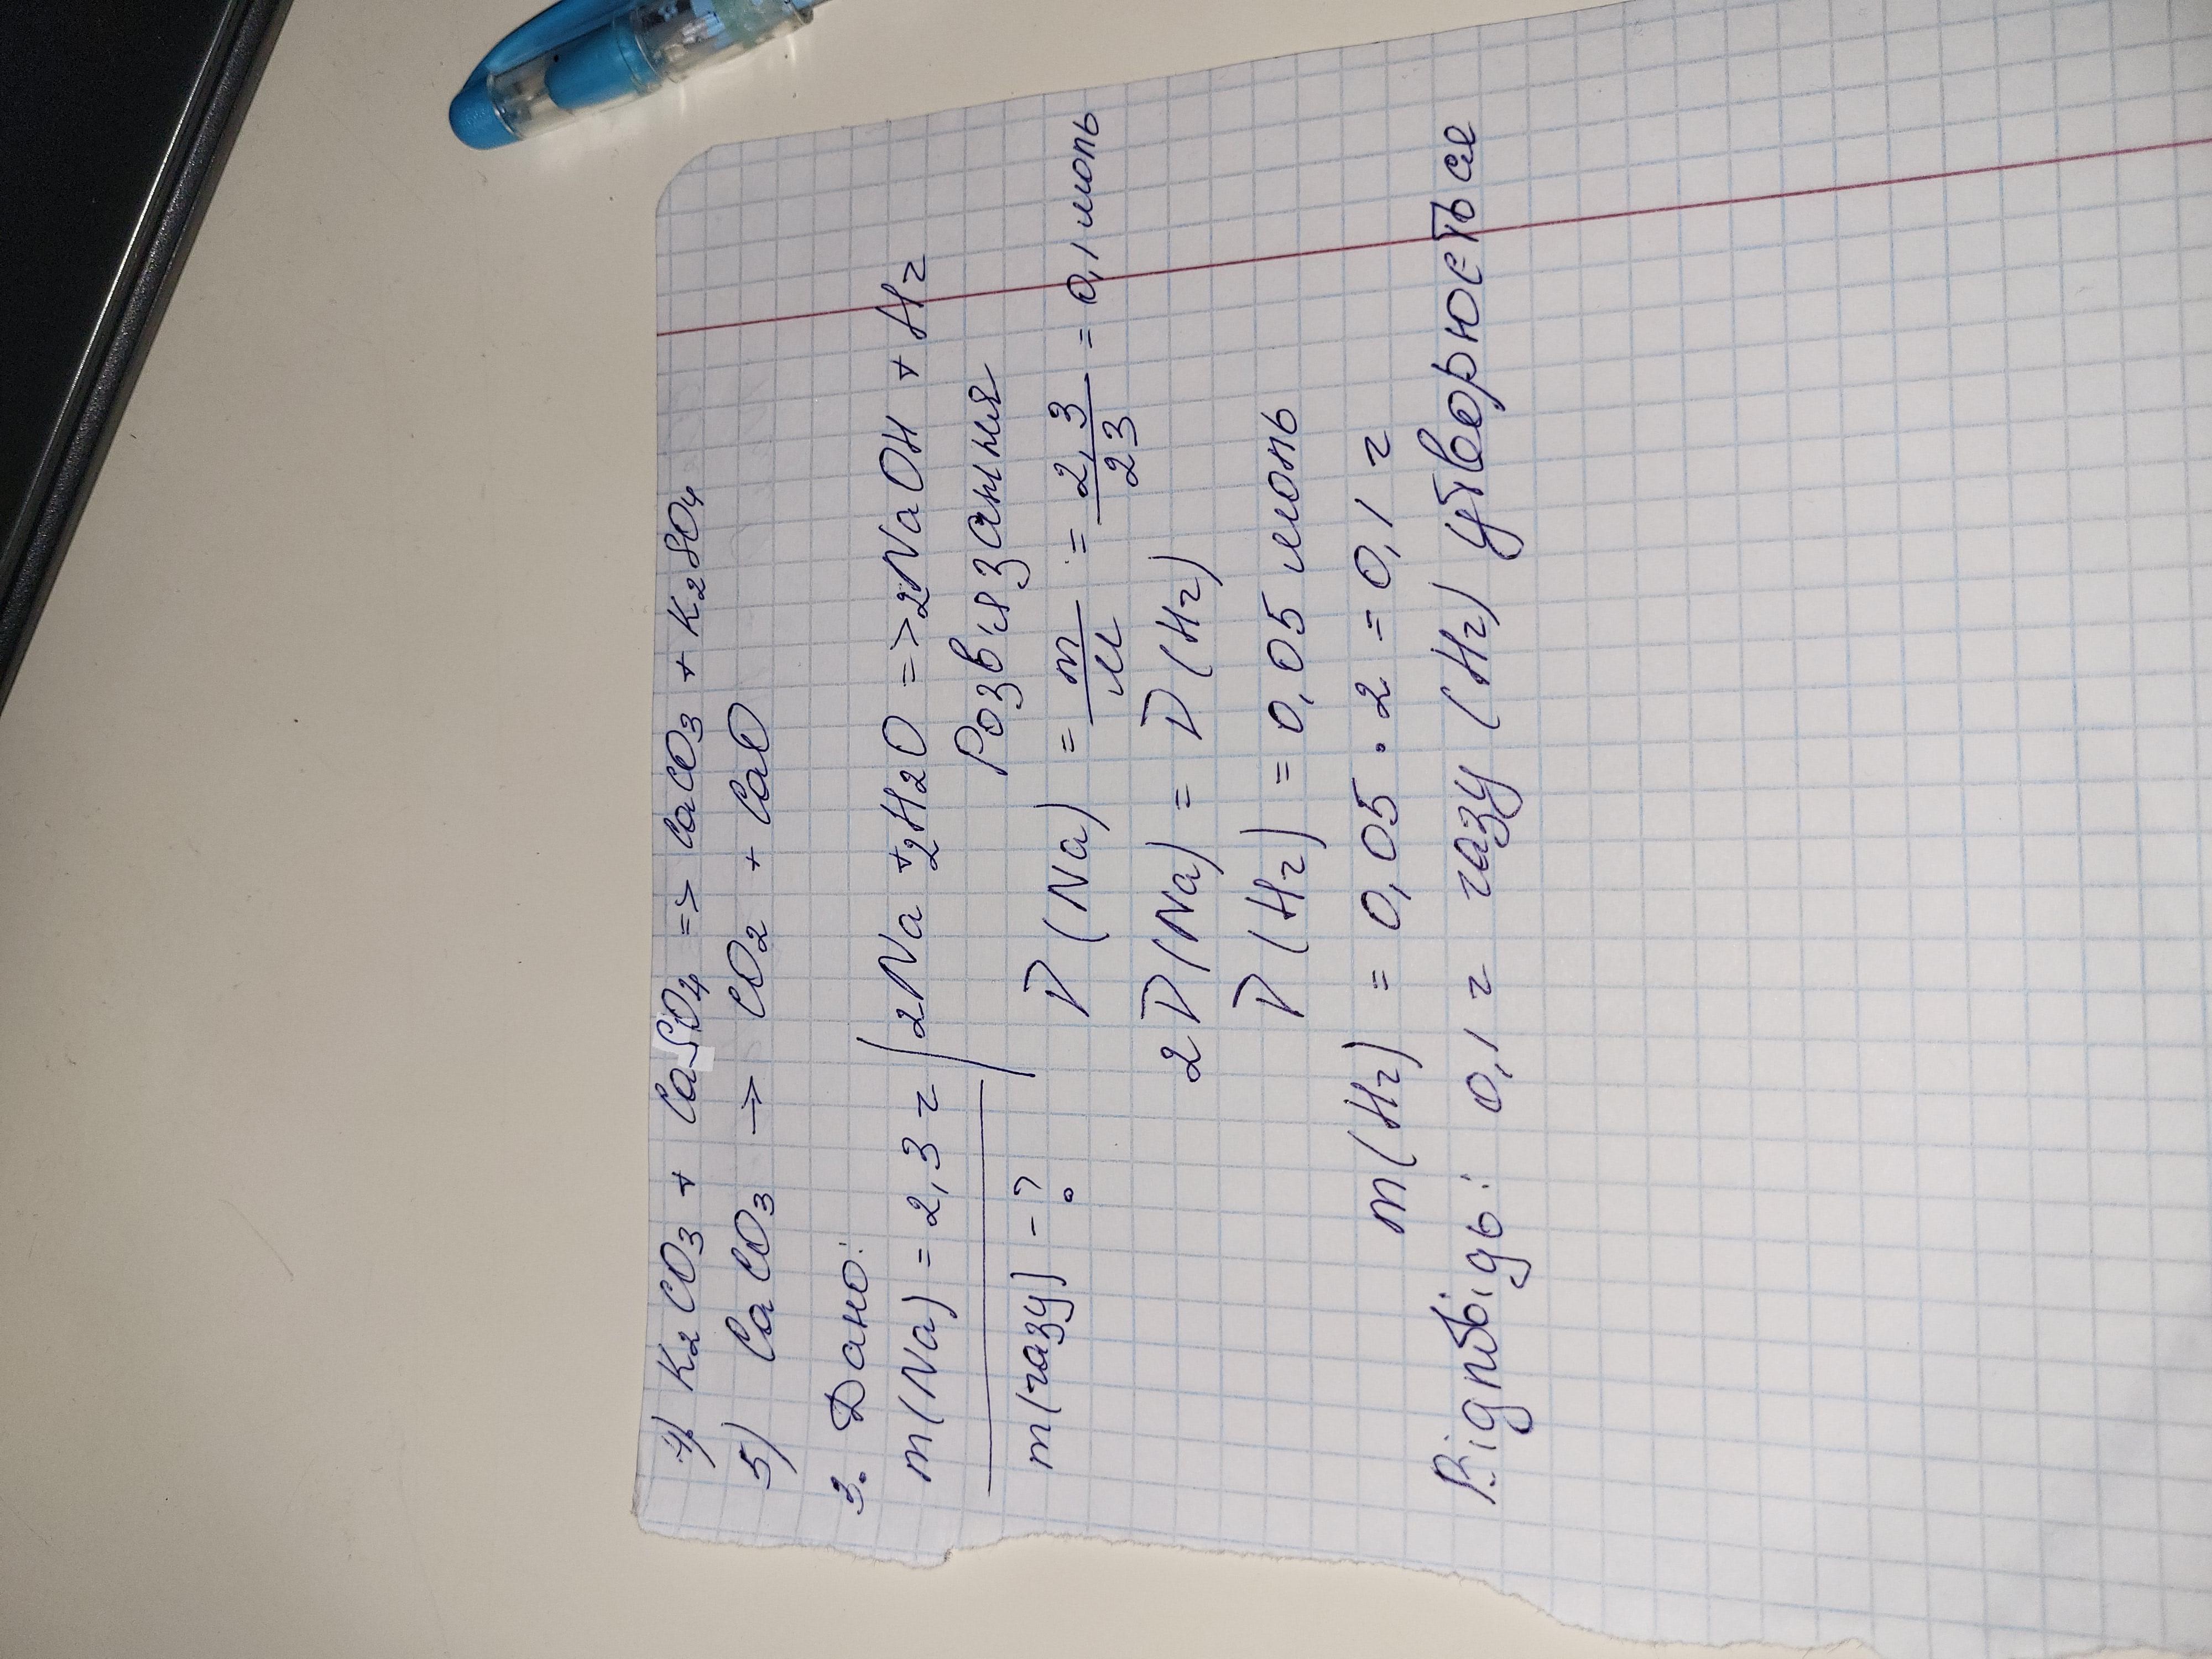 4) K₂CO₃ + CaSO₄ => CaCO₃ + K₂SO₄
5) CaCO₃ → CO₂ + CaO
3. Дано:
m(Na) = 2,3 г | 2Na + 2H₂O => 2NaOH + H₂
Розв'язання
m(газу) - ?
ν(Na) = m/M = 2,3/23 = 0,1 моль
2ν(Na) = ν(H₂)
ν(H₂) = 0,05 моль
m(H₂) = 0,05 · 2 = 0,1 г
Відповідь: 0,1 г газу (H₂) утворюється